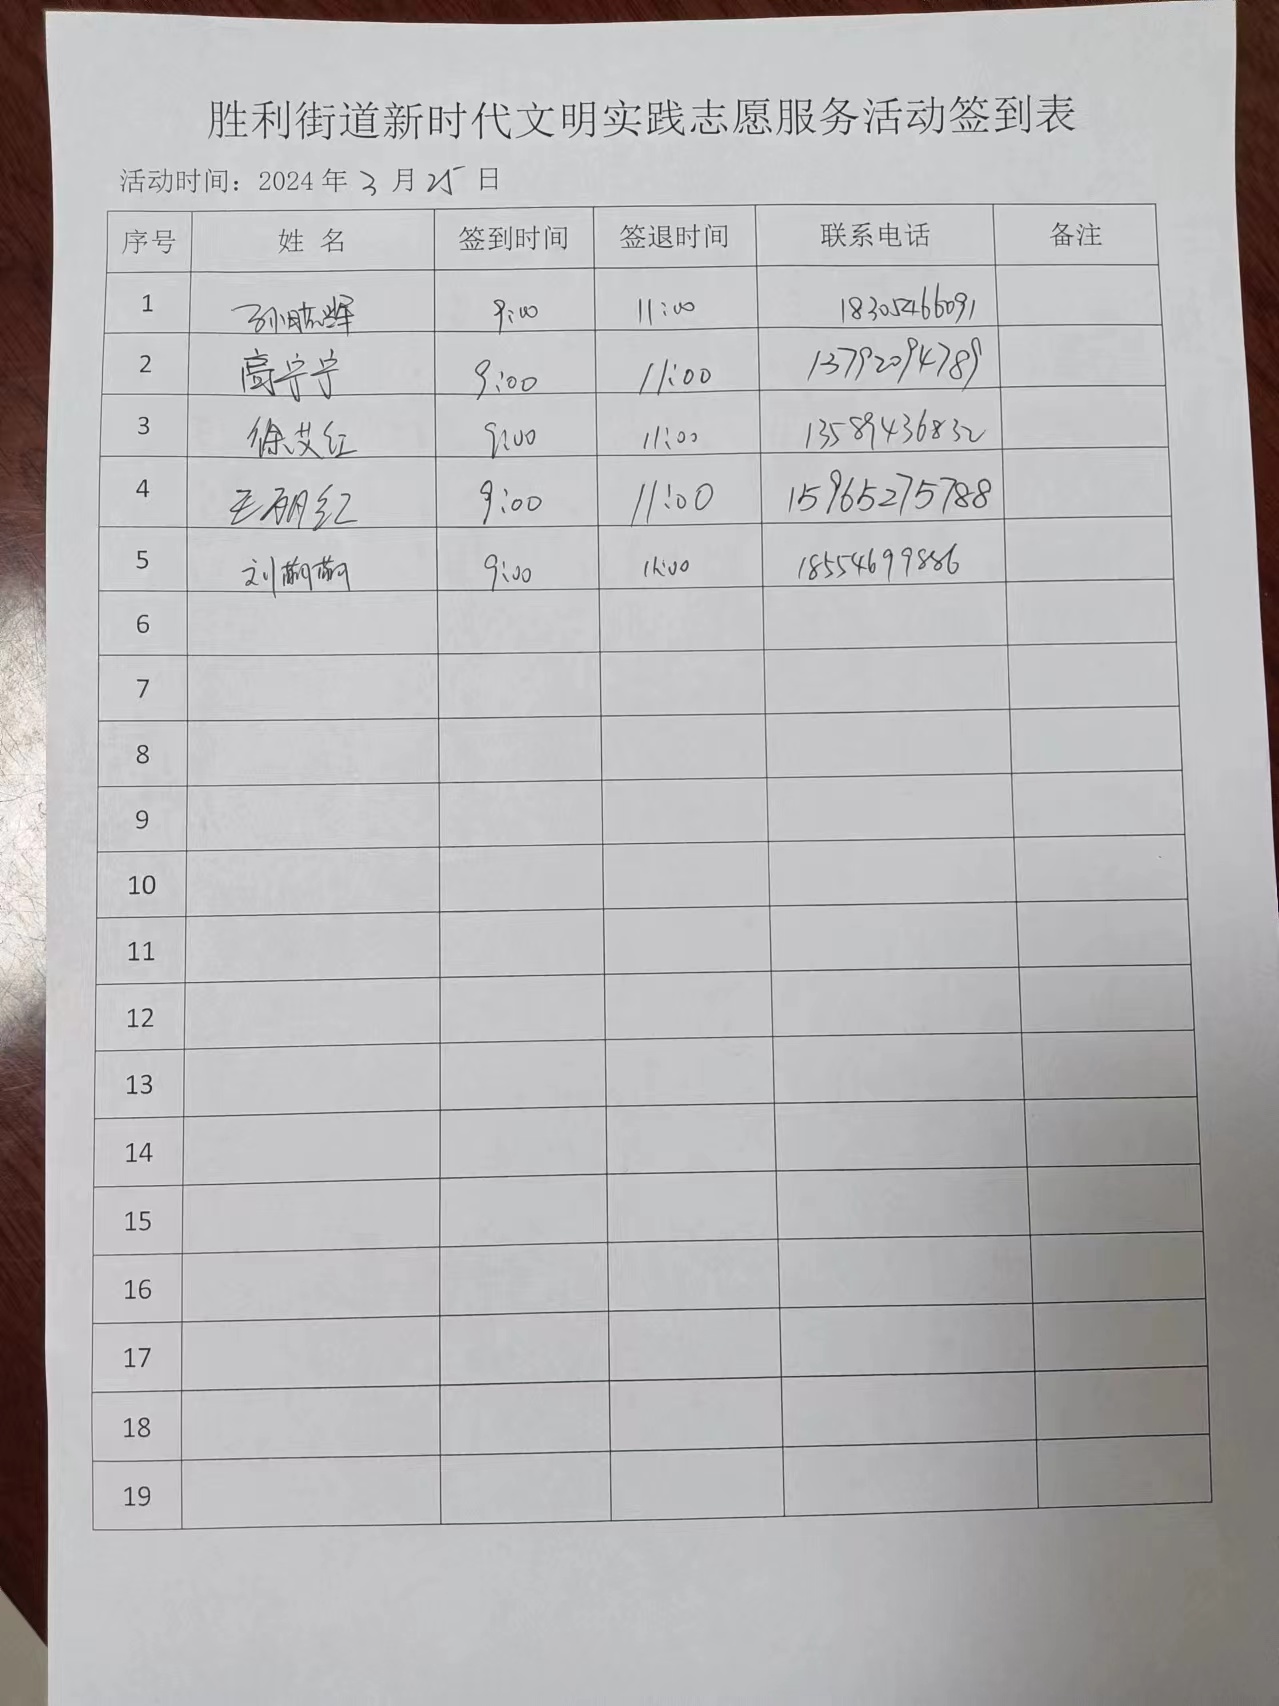 胜利街道新时代文明实践志愿服务活动签到表
活动时间：2024年3月25日
序号 姓 名 签到时间 签退时间 联系电话 备注
1 孙晓辉 9:00 11:00 18305466091
2 高宁宁 9:00 11:00 13792094789
3 徐艾红 9:00 11:00 13589436832
4 王丽红 9:00 11:00 15965275788
5 刘萌萌 9:00 11:00 18554699886
6
7
8
9
10
11
12
13
14
15
16
17
18
19